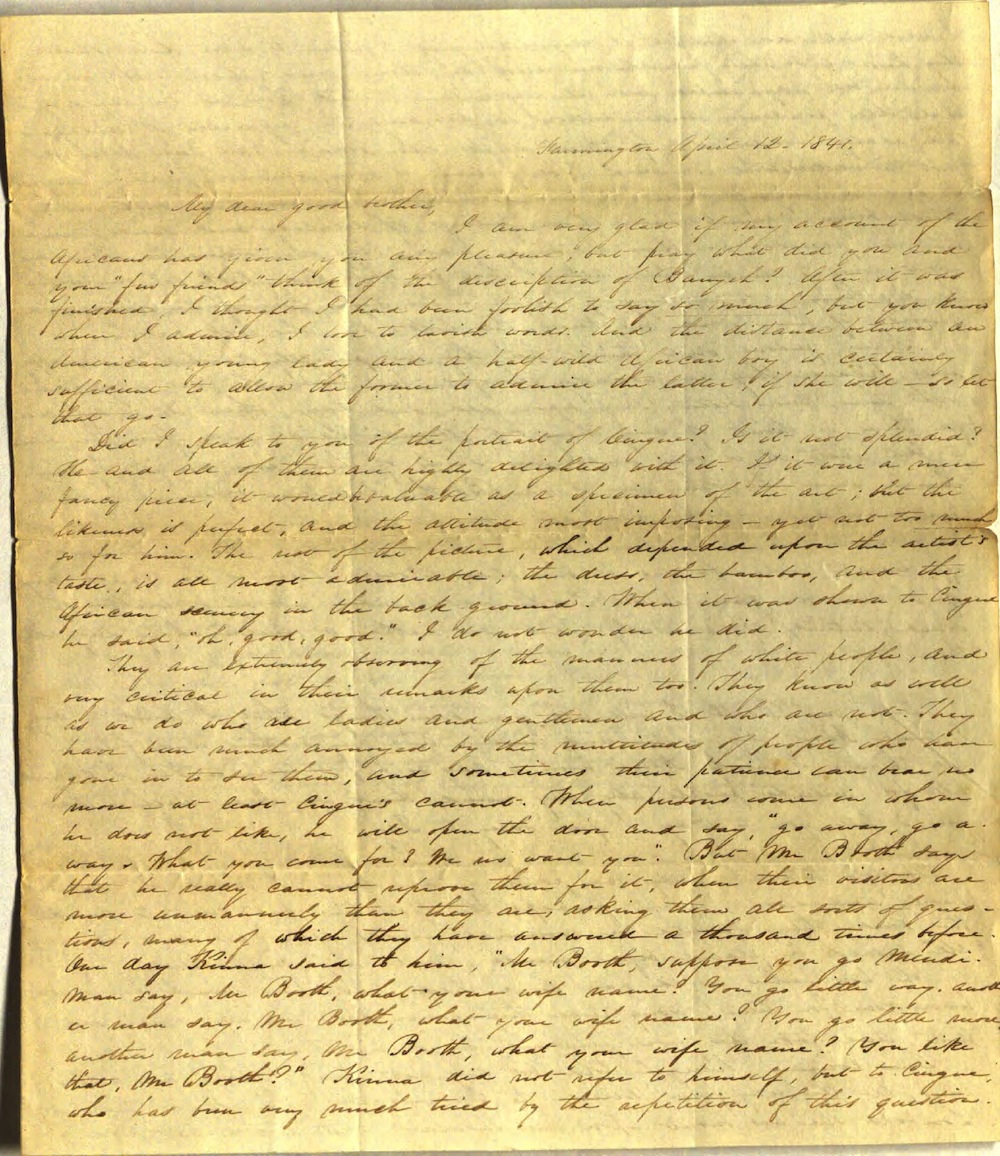 Farmington April 12 - 1841.
My dear good brother,
I am very glad if my account of the
Africans has given you any pleasure; but pray what did you and
your "few friends" think of the description of Banyeh? After it was
finished, I thought I had been foolish to say so much, but you know
when I admire, I love to lavish words. And the distance between an
American young lady and a half-wild African boy is certainly
sufficient to allow the former to admire the latter, if she will - so let
that go.
Did I speak to you of the portrait of Cingue? Is it not splendid?
He and all of them are highly delighted with it. If it were a mere
fancy piece, it would be valuable as a specimen of the art; but the
likeness is perfect, and the attitude most imposing - yet not too much
so for him. The rest of the picture, which depended upon the artist's
taste, is all most admirable; the dress, the bamboo, and the
African scenery in the back ground. When it was shown to Cingue
he said, "oh, good, good." I do not wonder he did.
They are extremely observing of the manners of white people, and
very critical in their remarks upon them too. They know as well
as we do who are ladies and gentlemen and who are not. They
have been much annoyed by the multitudes of people who have
gone in to see them, and sometimes their patience can bear no
more - at least Cingue's cannot. When persons come in whom
he does not like, he will open the door and say, "go away, go a
way. What you come for? We no want you". But Mr Booth says
that he really cannot reprove them for it, when their visitors are
more unmannerly than they are, asking them all sorts of ques-
tions, many of which they have answered a thousand times before.
One day Kinna said to him, "Mr Booth, suppose you go Mendi.
Man say, Mr Booth, what your wife name? You go little way. anoth
er man say. Mr Booth, what your wife name? You go little more,
another man say, Mr Booth, what your wife name? You like
that, Mr Booth?" Kinna did not refer to himself, but to Cingue,
who has been very much tried by the repetition of this question.